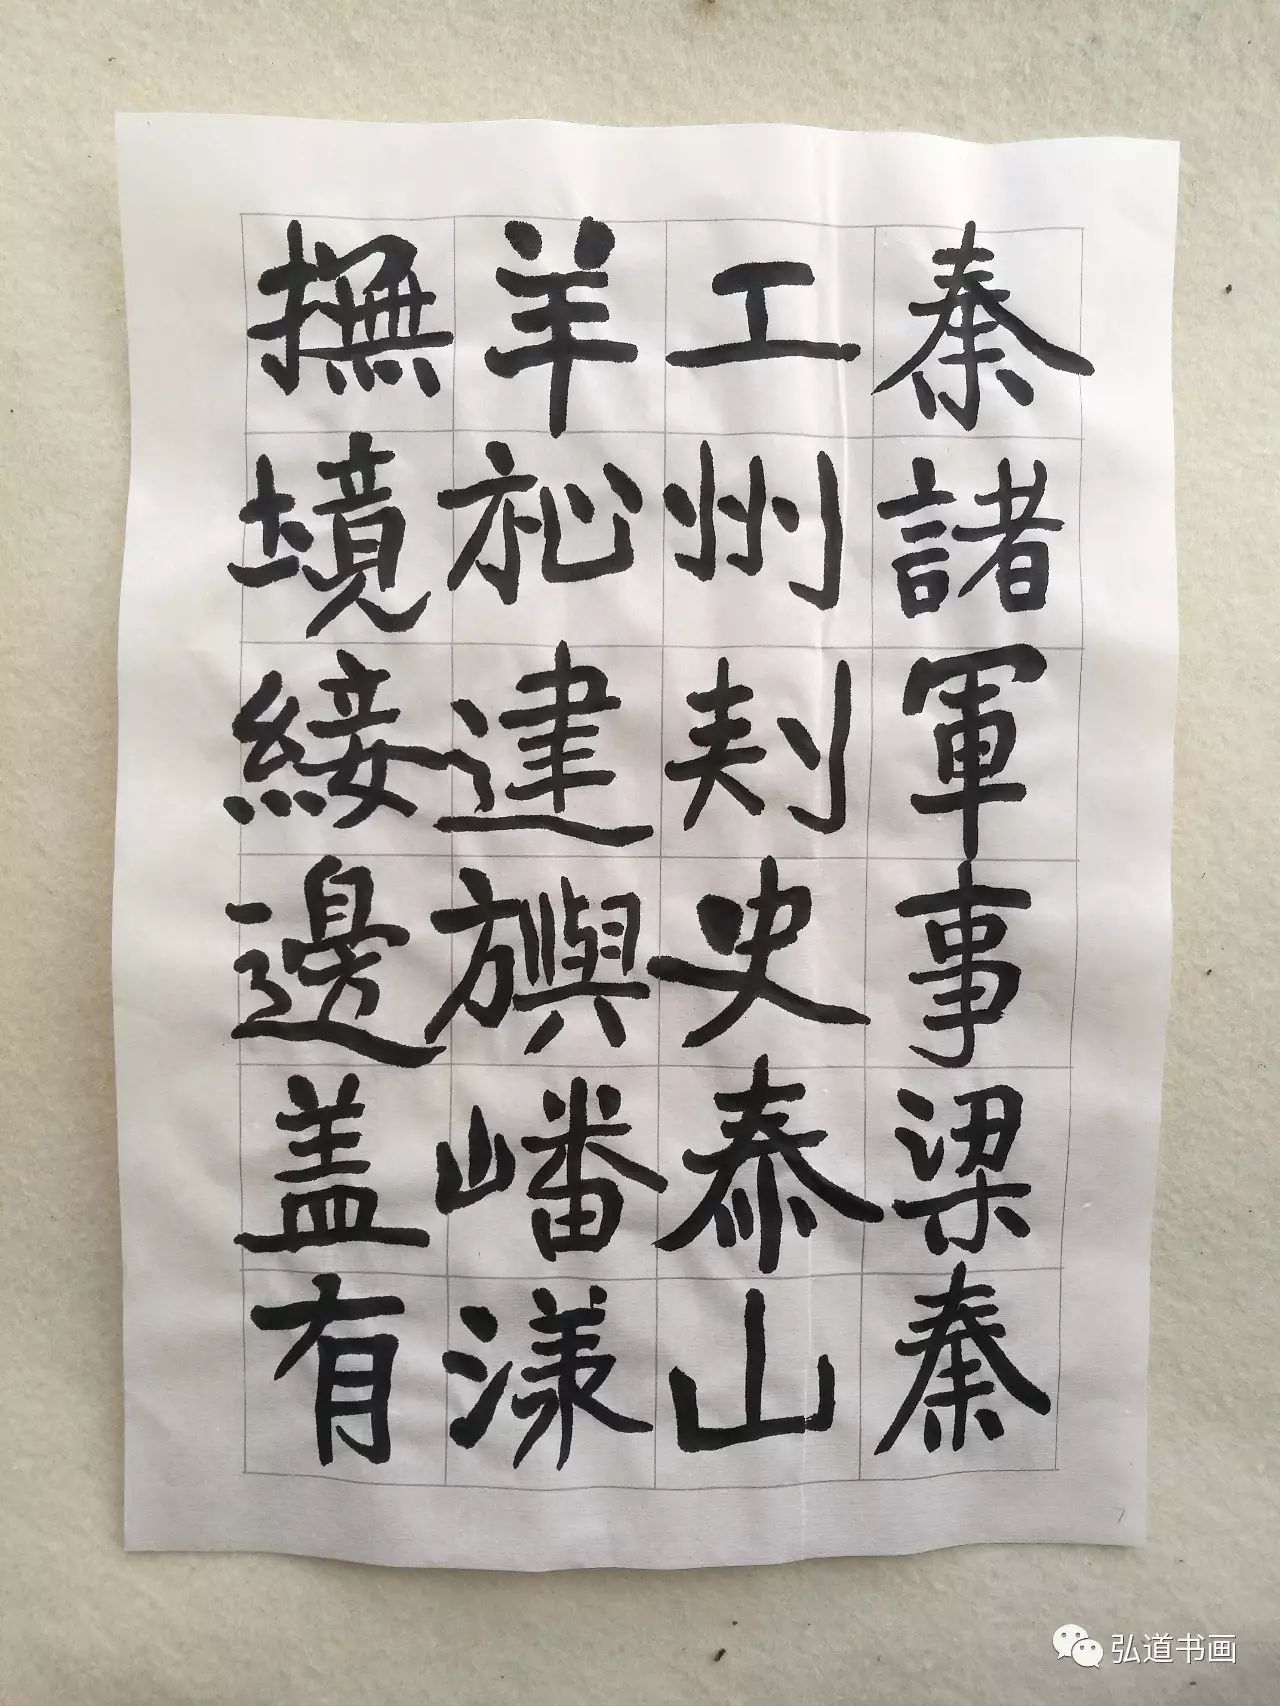 秦諸軍事梁秦
工州刾史泰山
羊祉建旟嶓漾
撫境綏邊盖有
弘道书画